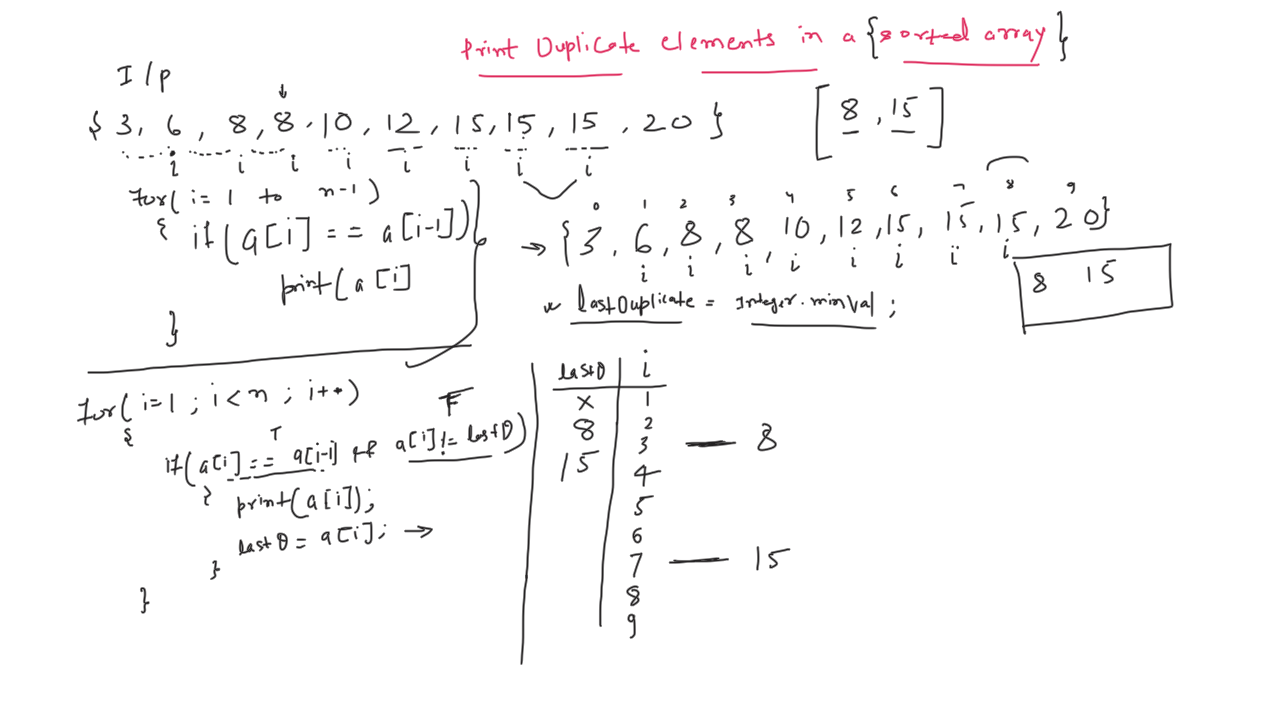 Print Duplicate elements in a {sorted array}
I/p
{ 3, 6, 8, 8, 10, 12, 15, 15, 15, 20 }
[8, 15]
i i i i i i i i
for( i = 1 to n-1)
{ if( a[i] == a[i-1])
print( a[i]
}
0 1 2 3 4 5 6 7 8 9
→ {3, 6, 8, 8, 10, 12, 15, 15, 15, 20}
i i i i i i i i
8 15
lastDuplicate = Integer.minVal ;
for( i=1 ; i<n ; i++)
{
T F
if( a[i] == a[i-1] && a[i] != lastD)
{ print( a[i]);
lastD = a[i]; →
}
}
lastD i
x 1
8 2
3 — 8
15 4
5
6
7 — 15
8
9